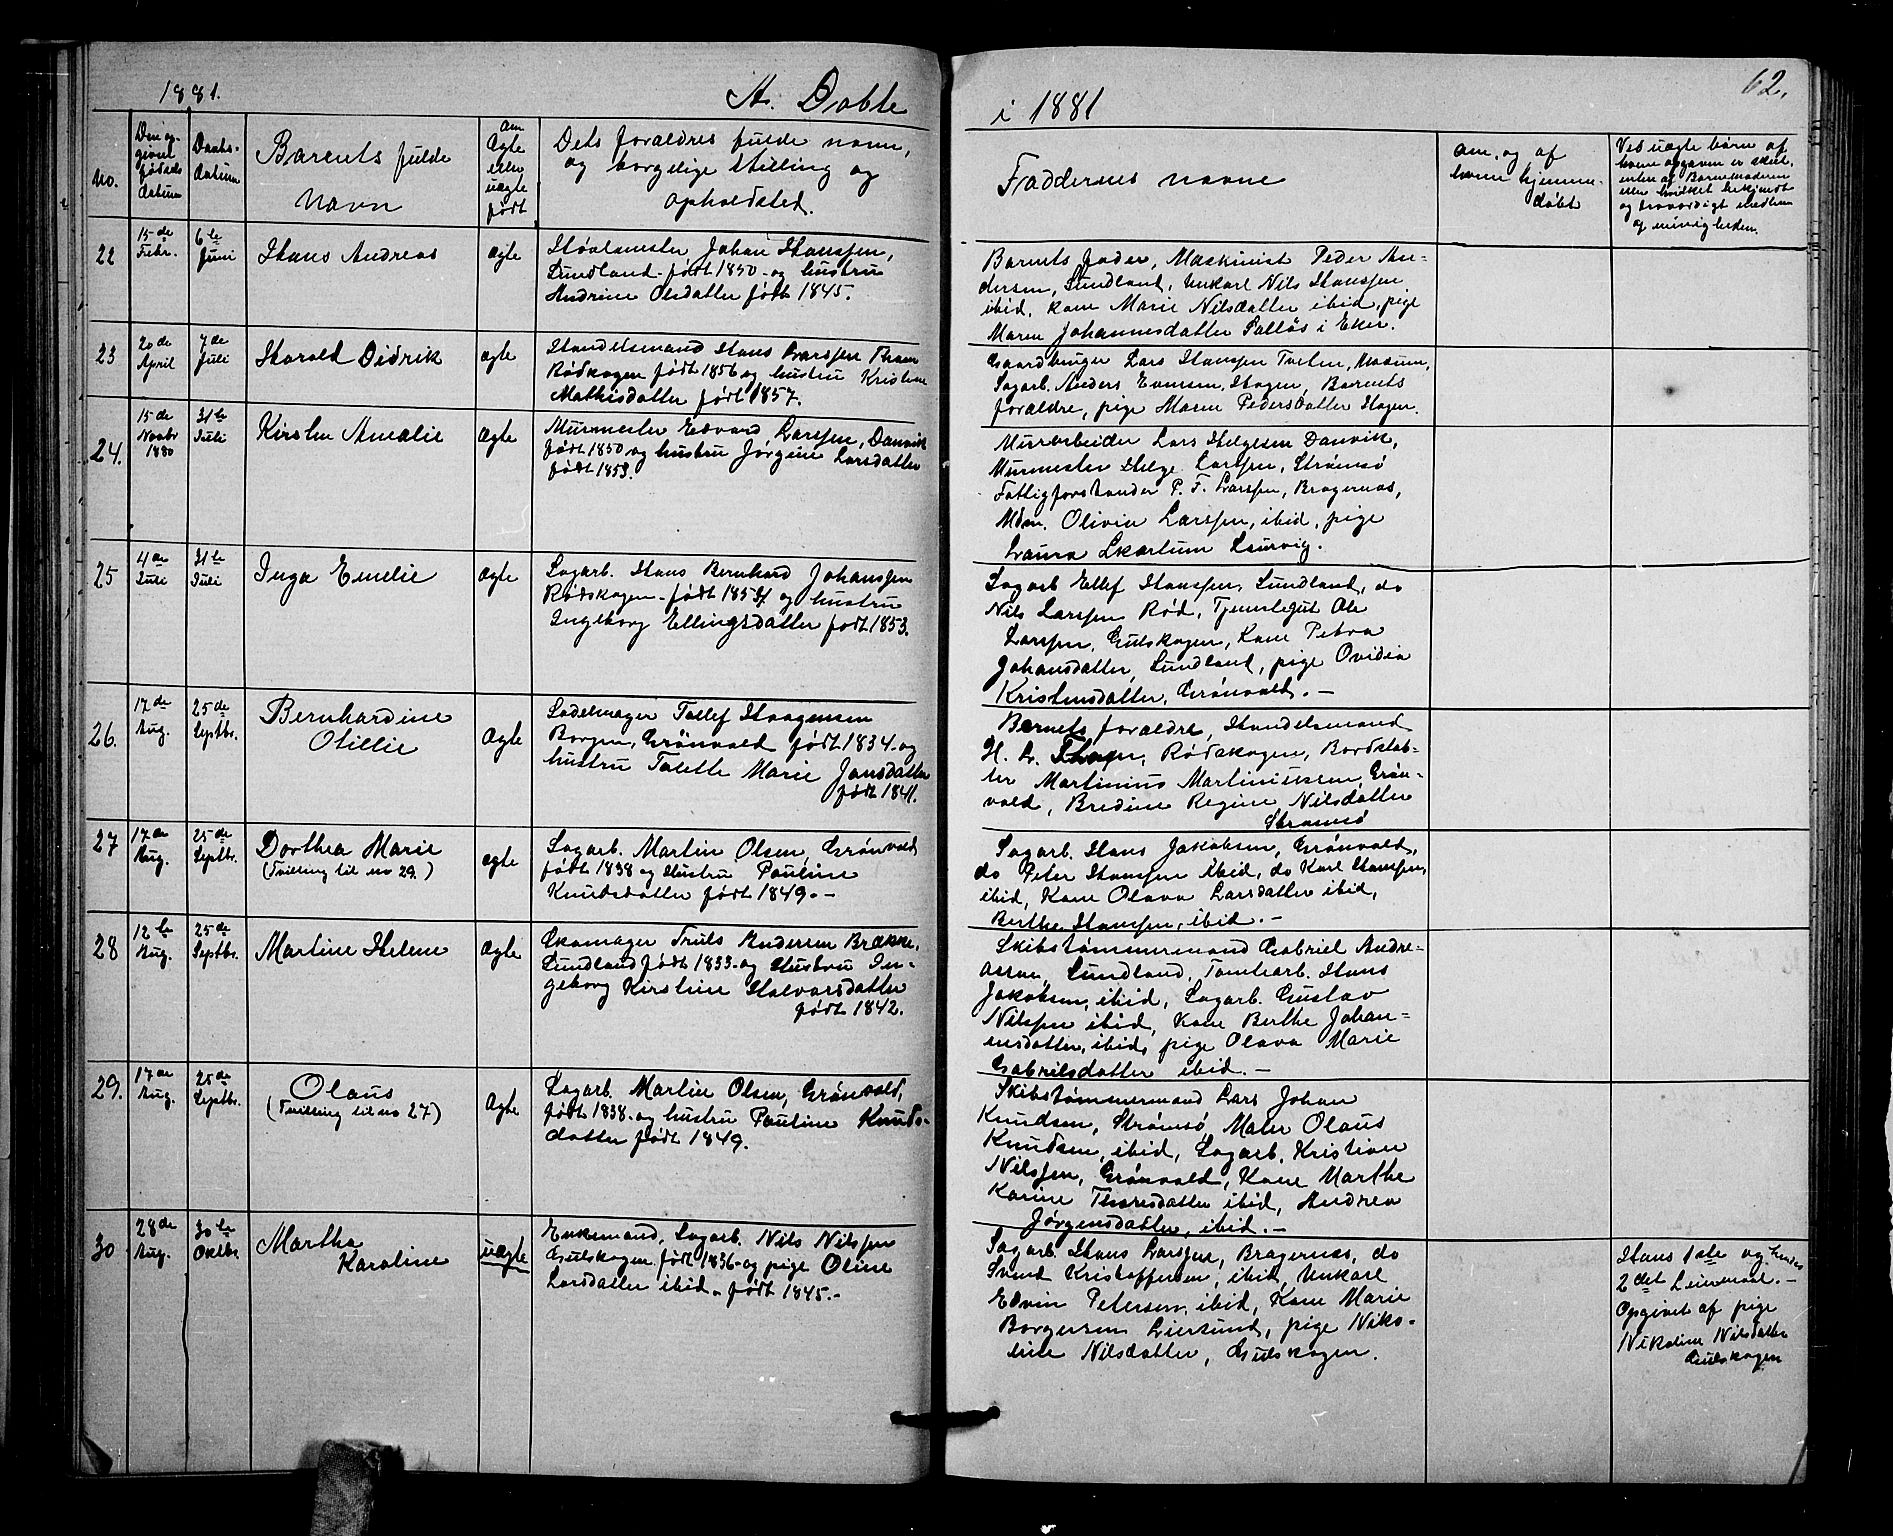 1881.
A. Døbte
No.
Den op-
givne
fødsels
datum
Daabs-
datum
Barnets fulde
navn
om
ægte
eller
uægte
født
Dets forældres fulde navn,
og borgelige stilling og
opholdsted.
22
15de
Febr.
6te
Juni
Hans Andreas
ægte
Johan Hanssen,
Sundland født 1850 og hustru
Andrine Olsdatter født 1845.
23
20de
April
7de
Juli
Harald Didrik
ægte
Handelsmand Hans Larssen Thom
Rødskogen født 1856 og hustru Kristine
Mathisdatter født 1857.
24.
15de
Novbr
1880
31te
Juli
Kirsten Amalie
ægte
Murmester Edvard Larssen, Danvik
født 1850 og hustru Jørgine Larsdatter
født 1853.
25
4de
Juli
31te
Juli
Inga Emelie
ægte
Sagarb. Hans Bernhard Johanssen
Rødskogen født 1854 og hustru
Ingeborg Ellingsdatter født 1853.
26.
17de
Aug.
25de
Septbr.
Bernhardine
Otillie
ægte
Sadelmager Tollef Haagensen
Borgen, Grønvold født 1834 og
hustru Tolette Marie Jansdatter
født 1841.
27
17de
Aug.
25de
Septbr.
Dorthea Marie
(Tvilling til no 29.)
ægte
Sagarb. Martin Olsen, Grønvold
født 1838 og Hustru Pauline
Knudsdatter født 1849. —
28
12te
Aug.
25de
Septbr.
Martine Helene
ægte
Skomager Truls Andersen Brække,
Sundland født 1833 og Hustru In-
geborg Kirstine Halvorsdatter
født 1842.
29.
17de
Aug.
25de
Septbr.
Olaus
(Tvilling til no 27)
ægte
Sagarb. Martin Olsen, Grønvold,
født 1838 og hustru Pauline Knuds-
datter født 1849.
30
28de
Aug.
30te
Oktbr.
Martha
Karoline
uægte
Enkemand, Sagarb. Nils Nilssen
Gulskogen født 1836 og pige Oline
Larsdatter ibid. født 1845. —
i 1881
62.
Faddernes navne
om og af
hvem hjemme-
døbt
Ved uægte børn af
hvem opgaven er skeet,
enten af Barnemoderen
eller hvilket bekjendt
og troværdigt medlem
af menigheden.
Barnets fader, Maskinist Peder An-
dersen, Sundland, Unkarl Nils Hanssen
ibid, kone Marie Nilsdatter ibid, pige
Maren Johannesdatter i Eker.
Gaardbruger Lars Hanssen Tveten, Modum,
Sagarb. Anders Evensen, Hagen, Barnets
forældre, pige Maren Pedersdatter Hagen.
Murarbeider Lars Helgesen Danvik,
Murmester Helge Larssen, Strømsø
Fattigforstander P. F. Larssen, Bragernæs,
Mdm. Olivia Larssen, ibid, pige
Laura Laurvig.
Sagarb Ellef Hanssen, Sundland, do
Nils Larssen Rød, Tjenestegut Ole
Larssen, Gulskogen, Kone Petra
Johansdatter, Sundland, pige Ovidia
Kristensdatter, Grønvold. —
Barnets forældre, Handelsmand
H. L. Thom, Rødskogen, Bordstab-
ler Martinius Martiniussen, Grøn-
vold, Bredine Regine Nilsdatter
Strømsø
Sagarb. Hans Jakobsen, Grønvold,
do Peter Hanssen ibid, do Karl Hanssen,
ibid, Kone Olava Larsdatter ibid,
Berthe Hanssen, ibid. —
Skibstømmermand Gabriel Andre-
assen, Sundland, Tomtearb. Hans
Jakobsen, ibid, Sagarb. Gustav
Nilssen ibid, Kone Berthe Johan-
nesdatter, ibid, pige Olava Marie
Gabrielsdatter ibid. —
Skibstømmermand Lars Johan
Knudsen, Strømsø, Maler Olaus
Knudsen, ibid, Sagarb. Kristian
Nilssen, Grønvold, Kone Marthe
Karine Thoresdatter ibid, Andrea
Jørgensdatter, ibid. —
Sagarb. Hans Larssen, Bragernæs, do
Svend Kristoffersen, ibid, Unkarl
Edvin Petersen, ibid, Kone Marie
Borgersen Liersund, pige Niko-
line Nilsdatter, Gulskogen.
Hans 1ste og hendes
2det Leiermaal. —
Opgivet af pige
Nikoline Nilsdatter
Gulskogen